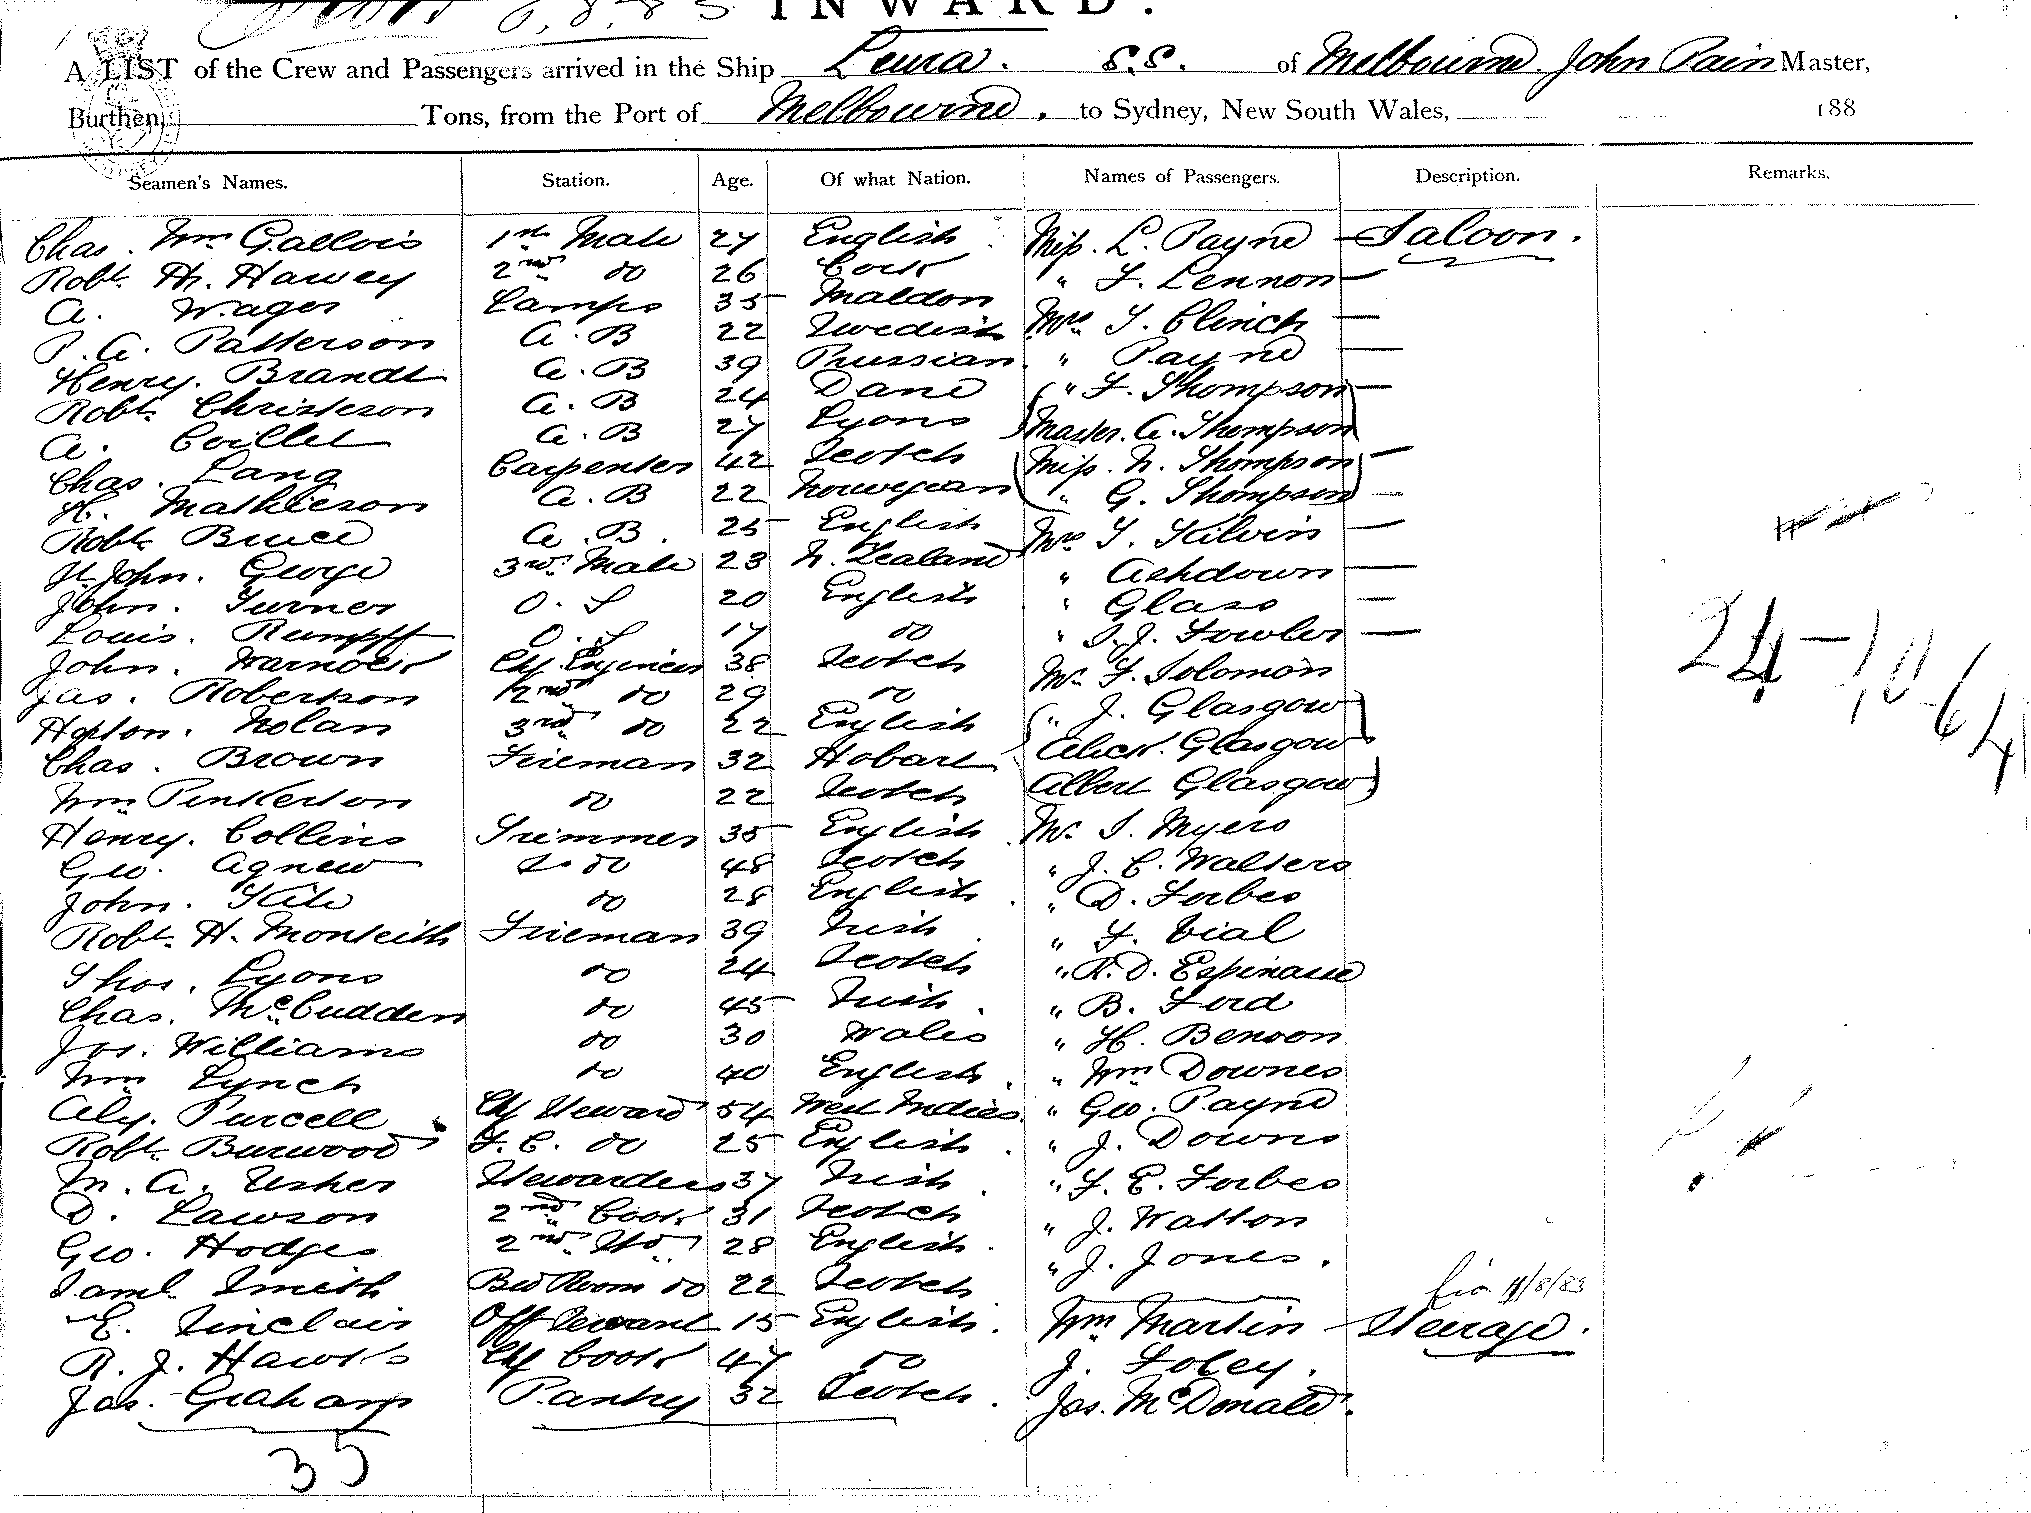 6.8.83 INWARD.
A LIST of the Crew and Passengers arrived in the Ship Leura. S.S. of Melbourne. John Pain Master,
Burthen, Tons, from the Port of Melbourne. to Sydney, New South Wales, 188
Seamen's Names. Station. Age. Of what Nation. Names of Passengers. Description. Remarks.
Chas. Wm Gallois 1st Mate 27 English Miss. L. Payne — Saloon.
Robt. Hy. Harvey 2nd do 26 Cork " F. Lennon —
A. Wager Lamps 35 Maldon Mrs T. Clinch —
P. A. Patterson A. B 22 Swedish " Payne —
Henry. Brandt A. B 39 Prussian " F. Thompson —
Robt. Christeson A. B 24 Dane Master. A. Thompson
A. Coillet A. B 27 Lyons Miss. N. Thompson —
Chas. Lang Carpenter 42 Scotch " G. Thompson —
H. Mathieson A. B 22 Norwegian Mrs T. Kilvin —
Robt. Bruce A. B. 25 English " Ashdown —
St. John. George 3rd Mate 23 N. Zealand " Glass —
John. Turner O. S 20 English " S. J. Fowler —
Louis. Rumpff O. S 17 do Mr. F. Solomon
John. Warnock Chf. Engineer 38 Scotch " J. Glasgow
Jas. Robertson 2nd do 29 do Alick. Glasgow
Horton. Nolan 3rd do 22 English Albert Glasgow
Chas. Brown Fireman 32 Hobart Mr. S. Myers
Wm Pinkerton do 22 Scotch " J. C. Walters
Henry. Collins Trimmer 35 English " D. Forbes
Geo. Agnew do 48 Scotch " F. Vial
John. Kite do 28 English " R. D. Espinasse
Robt. H. Monteith Fireman 39 Irish " B. Ford
Thos. Lyons do 24 Scotch " H. Benson
Chas. McCudden do 45 Irish " Wm Downes
Jos. Williams do 30 Wales " Geo. Payne
Wm Lynch do 40 English " J. Downs
Aly. Purcell Chf Steward 54 West Indies " F. E. Forbes
Robt. Burwood F. C. do 25 English " J. Watson
M. A. Usher Stewardess 37 Irish " J. Jones.
D. Lawson 2nd Cook 31 Scotch
Geo. Hodges 2nd Std. 28 English
Saml. Smith Bed Room do 22 Scotch 11/8/83
E. Sinclair Off Servant 15 English Wm Martin — Steerage.
R. J. Hawks Chf Cook 47 do J. Foley.
Jas. Graham Pantry 32 Scotch Jas. McDonald.
35
24-10-64